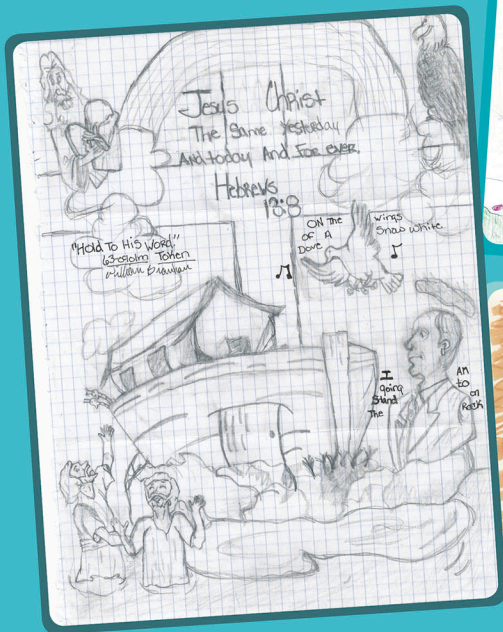 Jesus Christ
The Same Yesterday
And today And For ever.
Hebrews
13:8
"Hold To His Word."
63-0901m Token
William Branham
ON The wings
OF A Snow White
Dove
I AM
going to
Stand on
The Rock